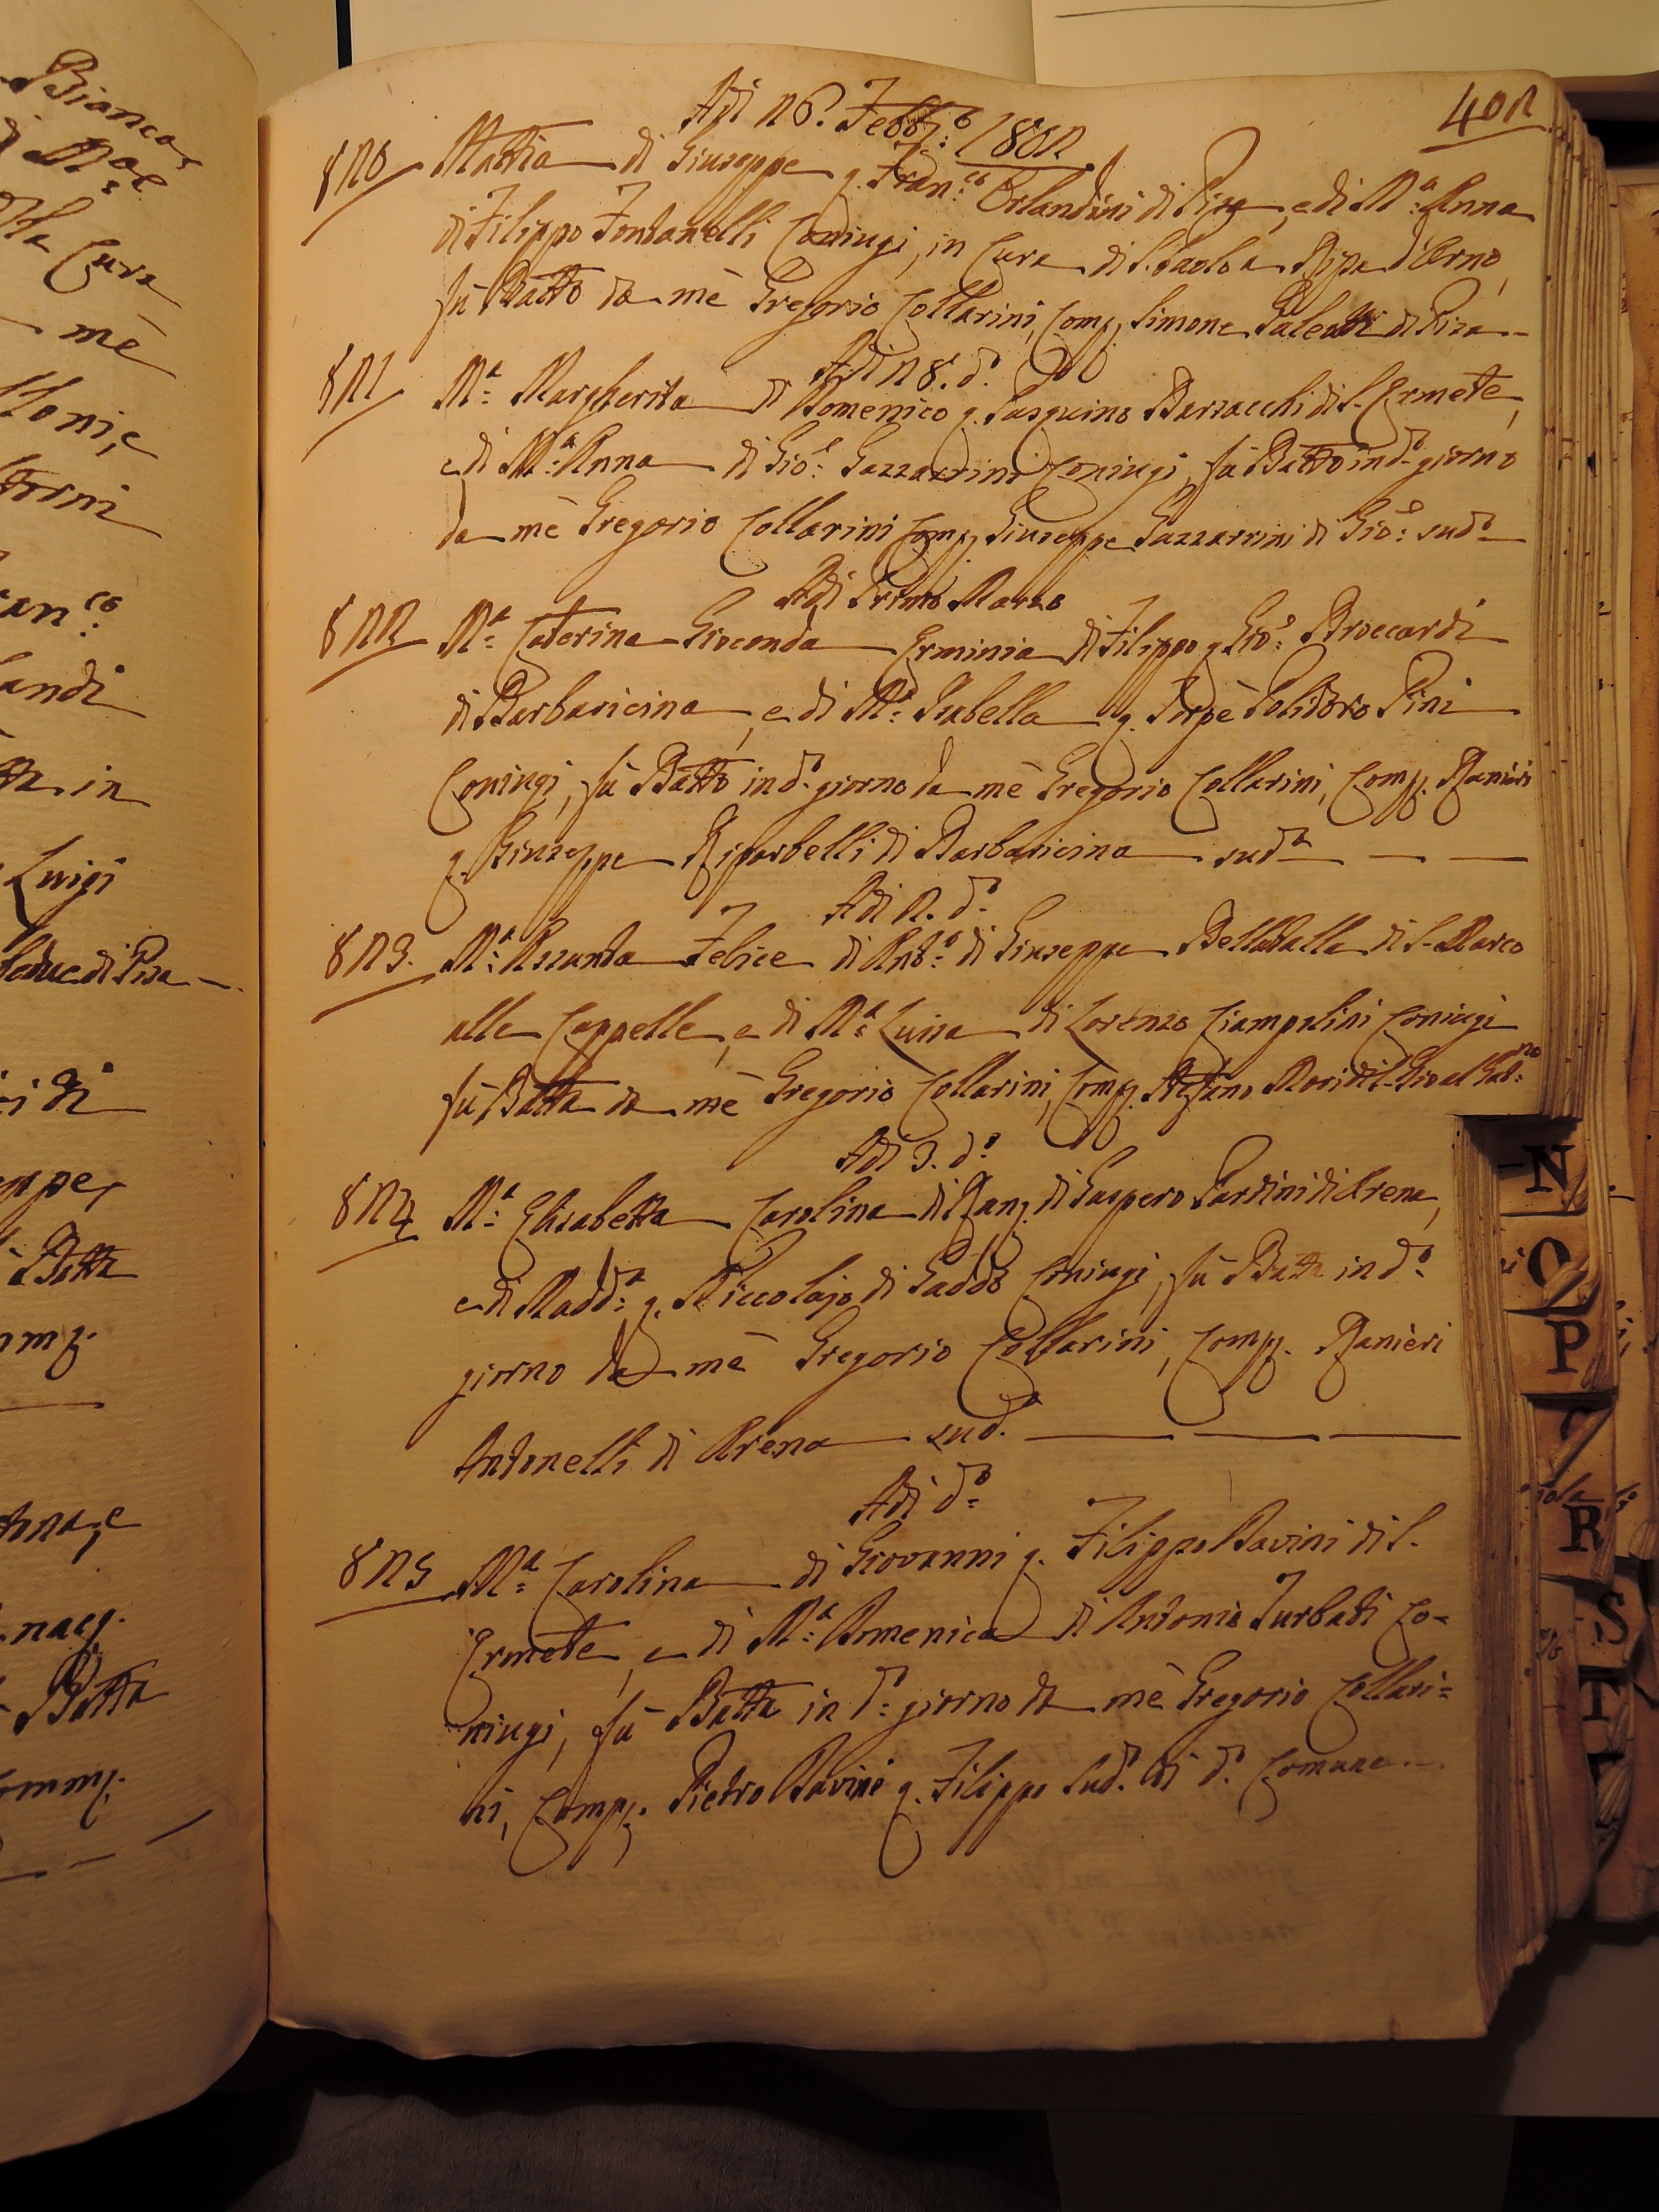 Bianco=
di M.a
della Cura
mè
an.co
andi
in
Luigi
di Pisa
Batta
Comp.
e
Batta
Comp.
402
Adi 26. Febb.o 1802
820 Mattia di Giuseppe q. Fran.co Orlandini di Pisa, e di M.a Anna
di Filippo Fontanelli Coniugi, in Cura di S. Paolo a Ripa d'Arno,
fù Batto da mè Gregorio Collarini, Comp. Simone di Pisa
Adi 28. d.o
821 M.a Margherita di Domenico q. Pasquino Barsacchi di S. Ermete,
e di M.a Anna di Gio: Gazzarrini Coniugi, fù Batto in d.o giorno
da mè Gregorio Collarini Comp. Giuseppe Gazzarrini di Gio: sud.o
Adi Primo Marzo
822 M.a Caterina Gioconda Erminia di Filippo q. Gio: Broccardi
di Barbaricina, e di M.a Isabella q. Torpè Polidoro Pini
Coniugi, fù Batto in d.o giorno da mè Gregorio Collarini, Comp. Ranieri
q. Giuseppe Riparbelli di Barbaricina sud.a
Adi 2. d.o
823. M.a Assunta Felice di Ant.o di Giuseppe Bellatalla di S. Marco
alle Cappelle, e di M.a Luisa di Lorenzo Ciampolini Coniugi
fù Batta da mè Gregorio Collarini, Comp. Stefano Mori di S. Gio al Gat:no
Adi 3. d.o
824 M.a Elisabetta Carolina di Ran. di Gaspero Pardini di Arena,
e di Madd.a q. Niccolajo di Gaddo Coniugi, fù Batta in d.o
giorno da mè Gregorio Collarini, Comp. Ranieri
Antonelli di Arena sud.a
Adi d.o
825 M.a Carolina di Giovanni q. Filippo Davini di S.
Ermete, e di M.a Domenica di Antonio Turbati Co=
niugi, fù Batta in d.o giorno da mè Gregorio Collari=
ni, Comp. Pietro Davini q. Filippo sud.o di d.o Comune
N
O
P
R
S
T